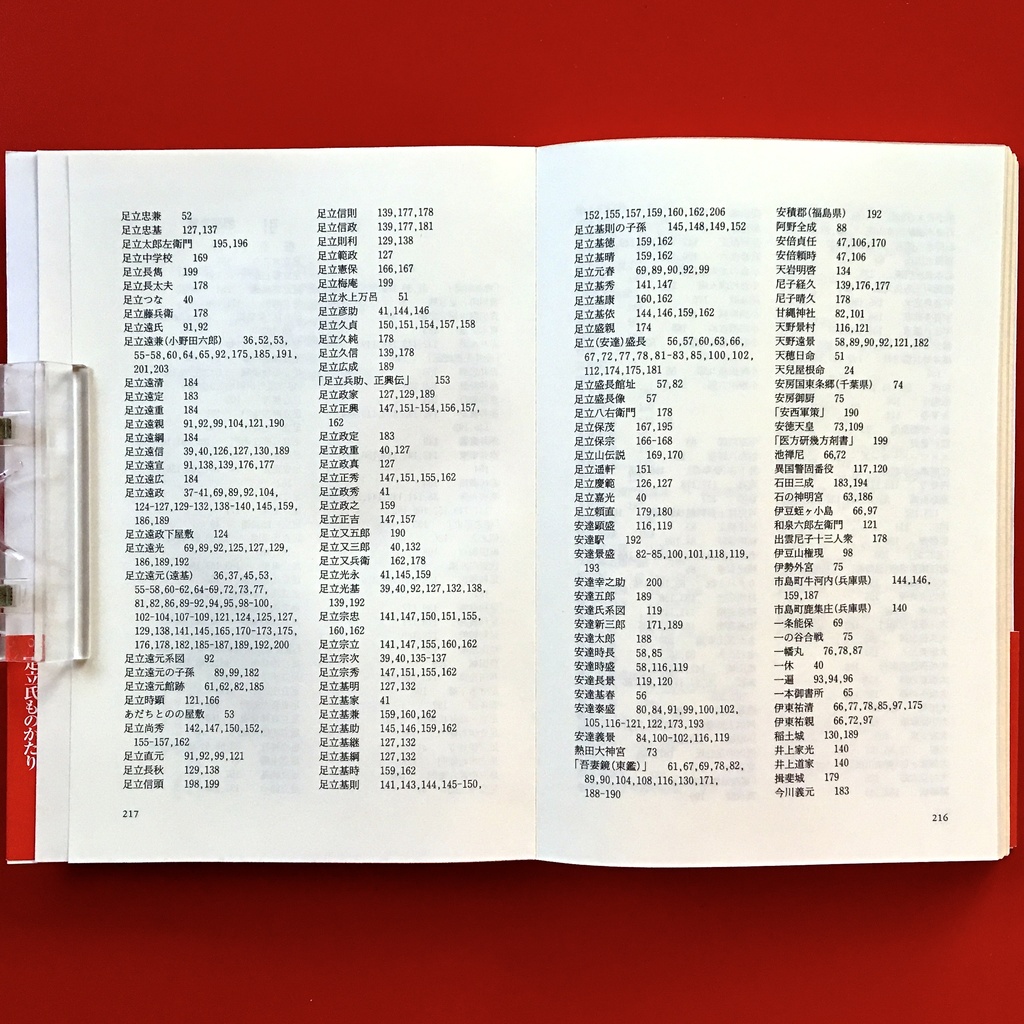 足立忠兼 52
足立忠基 127,137
足立太郎左衛門 195,196
足立中学校 169
足立長雋 199
足立長太夫 178
足立つな 40
足立藤兵衛 178
足立遠氏 91,92
足立遠兼(小野田六郎) 36,52,53,
55-58,60,64,65,92,175,185,191,
201,203
足立遠清 184
足立遠定 183
足立遠重 184
足立遠親 91,92,99,104,121,190
足立遠綱 184
足立遠信 39,40,126,127,130,189
足立遠宣 91,138,139,176,177
足立遠広 184
足立遠政 37-41,69,89,92,104,
124-127,129-132,138-140,145,159,
186,189
足立遠政下屋敷 124
足立遠光 69,89,92,125,127,129,
186,189,192
足立遠元(遠基) 36,37,45,53,
55-58,60-62,64-69,72,73,77,
81,82,86,89-92,94,95,98-100,
102-104,107-109,121,124,125,127,
129,138,141,145,165,170-173,175,
176,178,182,185-187,189,192,200
足立遠元系図 92
足立遠元の子孫 89,99,182
足立遠元館跡 61,62,82,185
足立時顕 121,166
あだちとのの屋敷 53
足立尚秀 142,147,150,152,
155-157,162
足立直元 91,92,99,121
足立長秋 129,138
足立信頭 198,199
足立信則 139,177,178
足立信政 139,177,181
足立則利 129,138
足立範政 127
足立憲保 166,167
足立梅庵 199
足立氷上万呂 51
足立彦助 41,144,146
足立久貞 150,151,154,157,158
足立久純 178
足立久信 139,178
足立広成 189
「足立兵助、正興伝」 153
足立政家 127,129,189
足立正興 147,151-154,156,157,
162
足立政定 183
足立政重 40,127
足立政真 127
足立正秀 147,151,155,162
足立政秀 41
足立政之 159
足立正吉 147,157
足立又五郎 190
足立又三郎 40,132
足立又兵衛 162,178
足立光永 41,145,159
足立光基 39,40,92,127,132,138,
139,192
足立宗忠 141,147,150,151,155,
160,162
足立宗立 141,147,155,160,162
足立宗次 39,40,135-137
足立宗秀 147,151,155,162
足立基明 127,132
足立基家 41
足立基兼 159,160,162
足立基助 145,146,159,162
足立基継 127,132
足立基綱 127,132
足立基時 159,162
足立基則 141,143,144,145-150,
217
152,155,157,159,160,162,206
足立基則の子孫 145,148,149,152
足立基徳 159,162
足立基晴 159,162
足立元春 69,89,90,92,99
足立基秀 141,147
足立基康 160,162
足立基依 144,146,159,162
足立盛親 174
足立(安達)盛長 56,57,60,63,66,
67,72,77,78,81-83,85,100,102,
112,174,175,181
足立盛長館址 57,82
足立盛長像 57
足立八右衛門 178
足立保茂 167,195
足立保宗 166-168
足立山伝説 169,170
足立遥軒 151
足立慶範 126,127
足立嘉光 40
足立頼直 179,180
安達顕盛 116,119
安達駅 192
安達景盛 82-85,100,101,118,119,
193
安達幸之助 200
安達五郎 189
安達氏系図 119
安達新三郎 171,189
安達太郎 188
安達時長 58,85
安達時盛 58,116,119
安達長景 119,120
安達基春 56
安達泰盛 80,84,91,99,100,102,
105,116-121,122,173,193
安達義景 84,100-102,116,119
熱田大神宮 73
「吾妻鏡(東鑑)」 61,67,69,78,82,
89,90,104,108,116,130,171,
188-190
安積郡(福島県) 192
阿野全成 88
安倍貞任 47,106,170
安倍頼時 47,106
天岩明啓 134
尼子経久 139,176,177
尼子晴久 178
甘縄神社 82,101
天野景村 116,121
天野遠景 58,89,90,92,121,182
天穂日命 51
天兒屋根命 24
安房国東条郷(千葉県) 74
安房御厨 75
「安西軍策」 190
安徳天皇 73,109
「医方研幾方剤書」 199
池禅尼 66,72
異国警固番役 117,120
石田三成 183,194
石の神明宮 63,186
伊豆蛭ヶ小島 66,97
和泉六郎左衛門 121
出雲尼子十三人衆 178
伊豆山権現 98
伊勢外宮 75
市島町牛河内(兵庫県) 144,146,
159,187
市島町鹿集庄(兵庫県) 140
一条能保 69
一の谷合戦 75
一幡丸 76,78,87
一休 40
一遍 93,94,96
一本御書所 65
伊東祐清 66,77,78,85,97,175
伊東祐親 66,72,97
稲土城 130,189
井上家光 140
井上道家 140
揖斐城 179
今川義元 183
216
足立氏ものがたり